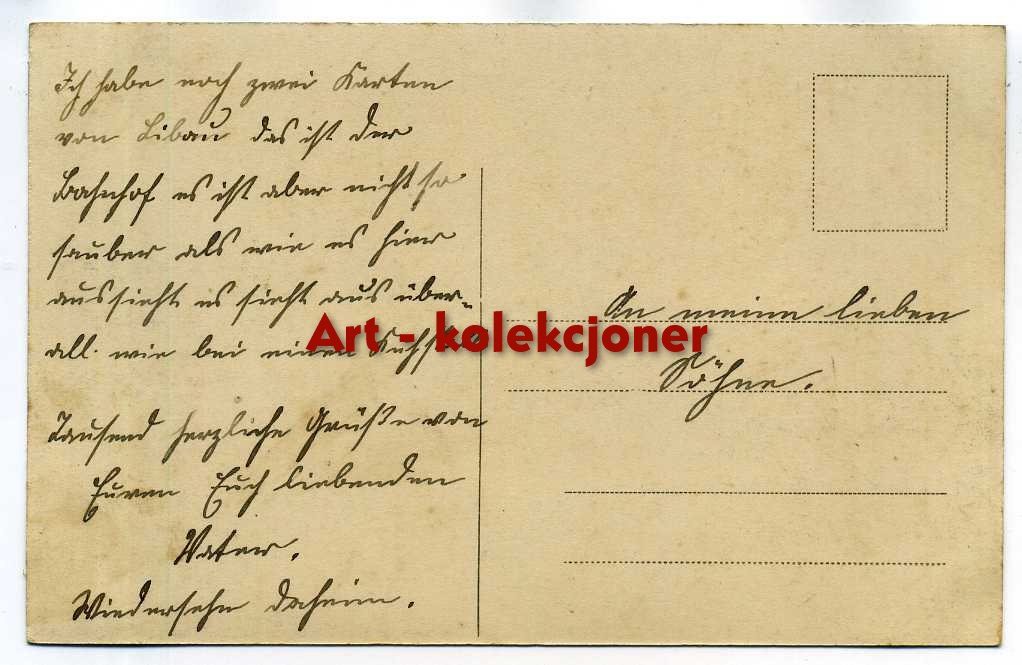 Ich habe noch zwei Karten
von Libau das ist der
Bahnhof es ist aber nicht so
sauber als wie es hier
aussieht es sieht aus über-
all. wie bei einen
Tausend herzliche Grüße von
Euren Euch liebenden
Vater.
Wiedersehn daheim.
An meine lieben
Söhne.
Art - kolekcjoner